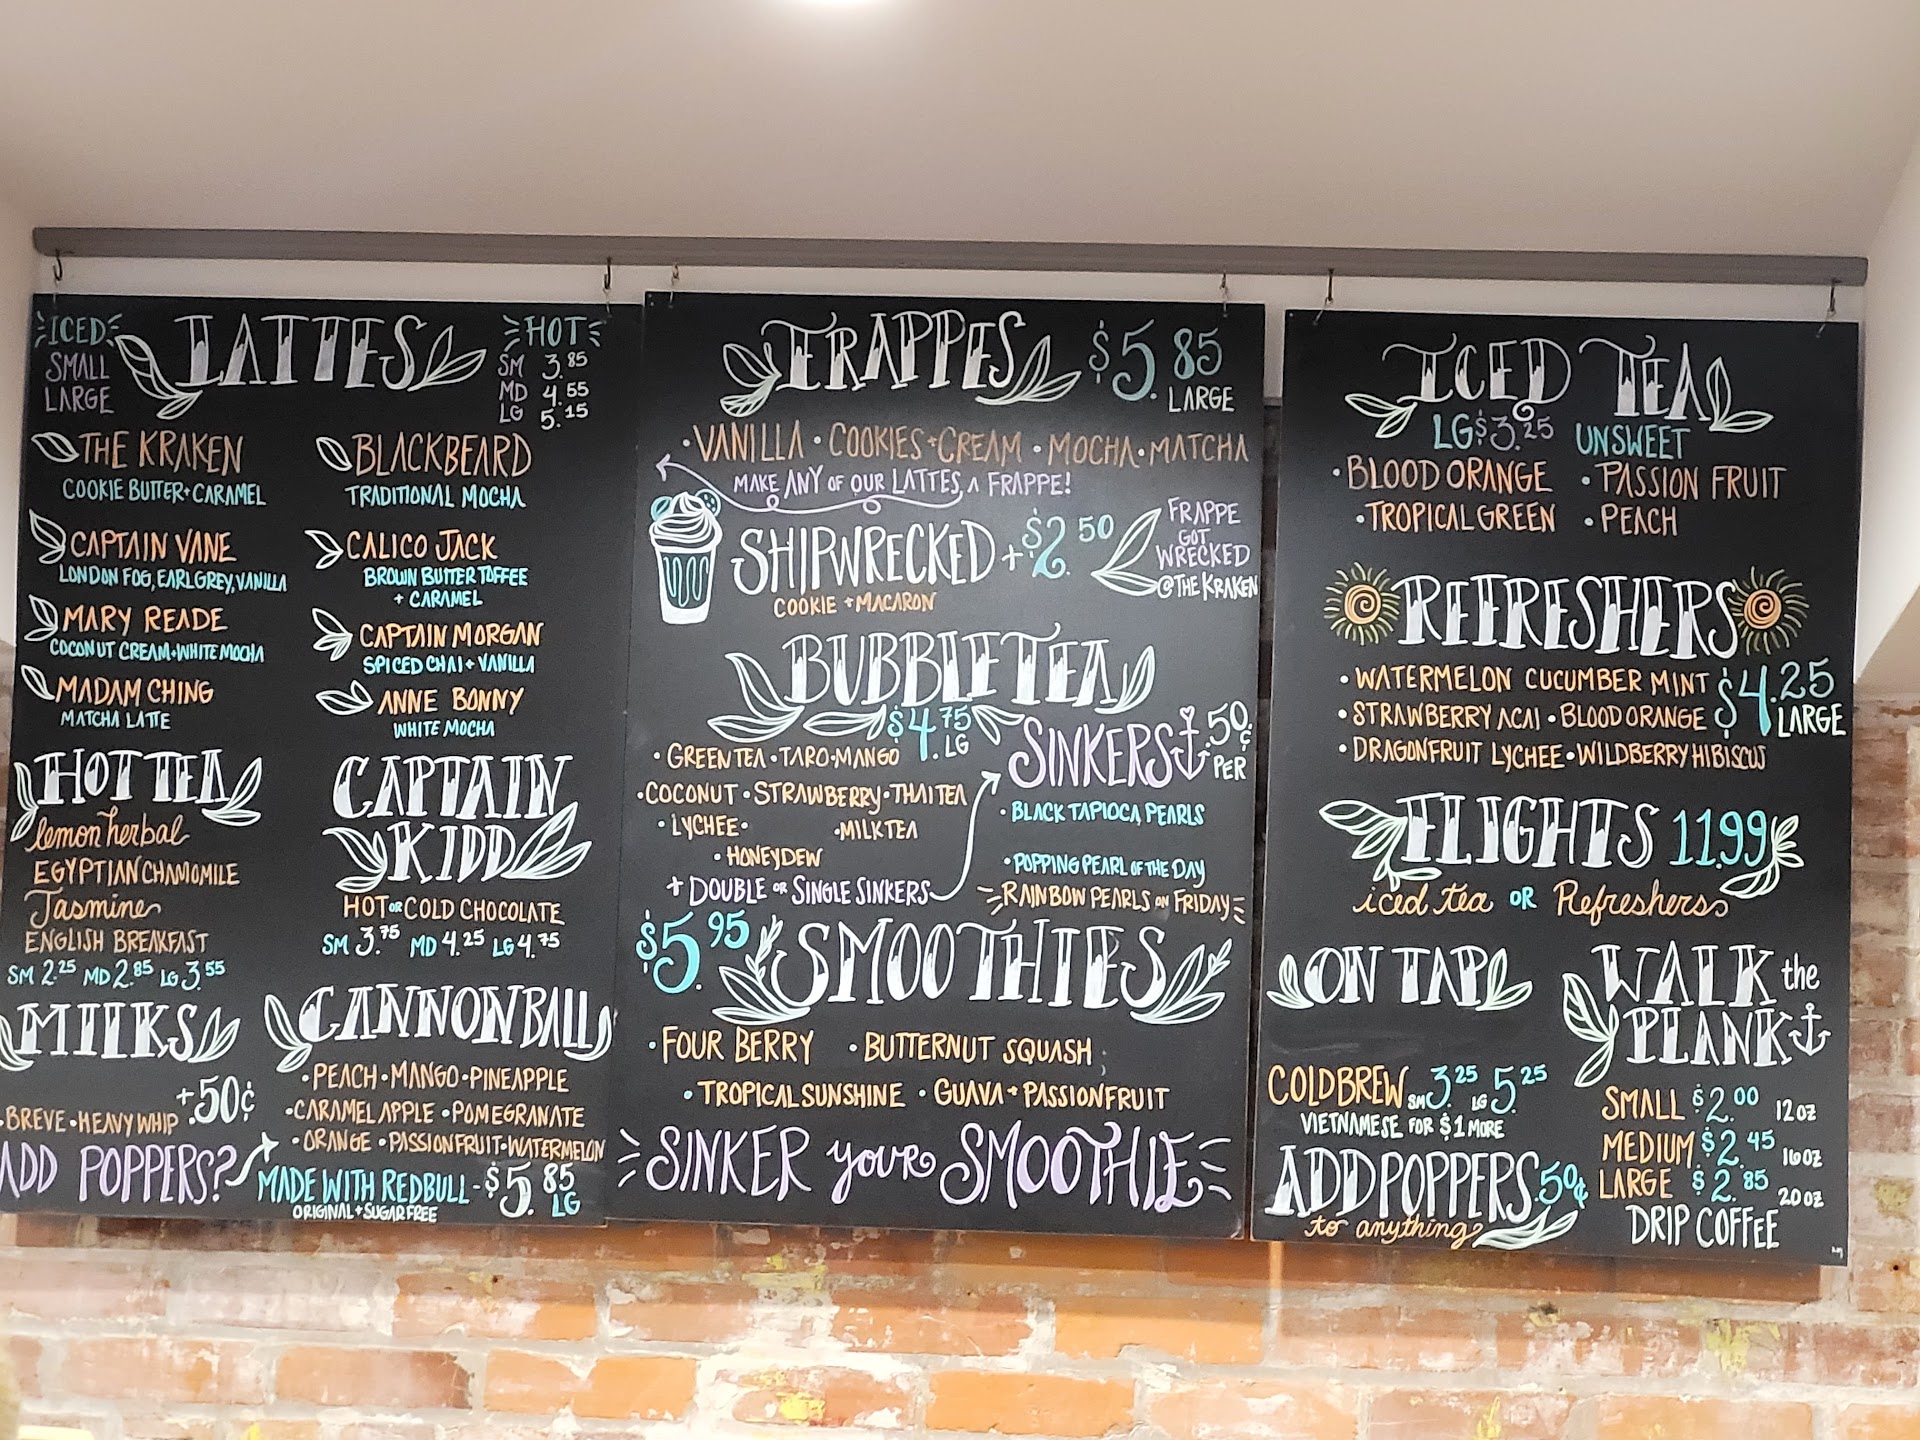 ICED
SMALL
LARGE
LATTES
HOT
SM 3.85
MD 4.55
LG 5.15
THE KRAKEN
COOKIE BUTTER + CARAMEL
BLACKBEARD
TRADITIONAL MOCHA
CAPTAIN VANE
LONDON FOG, EARL GREY, VANILLA
CALICO JACK
BROWN BUTTER TOFFEE
+ CARAMEL
MARY READE
COCONUT CREAM + WHITE MOCHA
CAPTAIN MORGAN
SPICED CHAI + VANILLA
MADAM CHING
MATCHA LATTE
ANNE BONNY
WHITE MOCHA
HOT TEA
lemon herbal
EGYPTIAN CHAMOMILE
Jasmine
ENGLISH BREAKFAST
SM 2.25 MD 2.85 LG 3.55
CAPTAIN
KIDD
HOT OR COLD CHOCOLATE
SM 3.75 MD 4.25 LG 4.75
MILKS
+.50¢
BREVE • HEAVY WHIP
ADD POPPERS?
CANNONBALL
• PEACH • MANGO • PINEAPPLE
• CARAMEL APPLE • POMEGRANATE
• ORANGE • PASSIONFRUIT • WATERMELON
MADE WITH REDBULL - $5.85 LG
ORIGINAL + SUGAR FREE
FRAPPES $5.85
LARGE
• VANILLA • COOKIES + CREAM • MOCHA • MATCHA
MAKE ANY OF OUR LATTES A FRAPPE!
SHIPWRECKED +$2.50
COOKIE + MACARON
FRAPPE
GOT
WRECKED
@THE KRAKEN
BUBBLE TEA
$4.75 LG
• GREEN TEA • TARO • MANGO
• COCONUT • STRAWBERRY • THAI TEA
• LYCHEE • • MILK TEA
• HONEYDEW
+ DOUBLE OR SINGLE SINKERS
SINKERS .50¢ PER
• BLACK TAPIOCA PEARLS
• POPPING PEARL OF THE DAY
RAINBOW PEARLS ON FRIDAY
$5.95 SMOOTHIES
• FOUR BERRY • BUTTERNUT SQUASH
• TROPICAL SUNSHINE • GUAVA + PASSIONFRUIT
SINKER your SMOOTHIE
ICED TEA
LG $3.25 UNSWEET
• BLOOD ORANGE • PASSION FRUIT
• TROPICAL GREEN • PEACH
REFRESHERS
• WATERMELON CUCUMBER MINT
• STRAWBERRY ACAI • BLOOD ORANGE
• DRAGONFRUIT LYCHEE • WILDBERRY HIBISCUS
$4.25
LARGE
FLIGHTS 11.99
iced tea OR Refreshers
ON TAP
COLD BREW SM 3.25 LG 5.25
VIETNAMESE FOR $1 MORE
ADD POPPERS .50¢
to anything
WALK the
PLANK
SMALL $2.00 12 oz
MEDIUM $2.45 16 oz
LARGE $2.85 20 oz
DRIP COFFEE